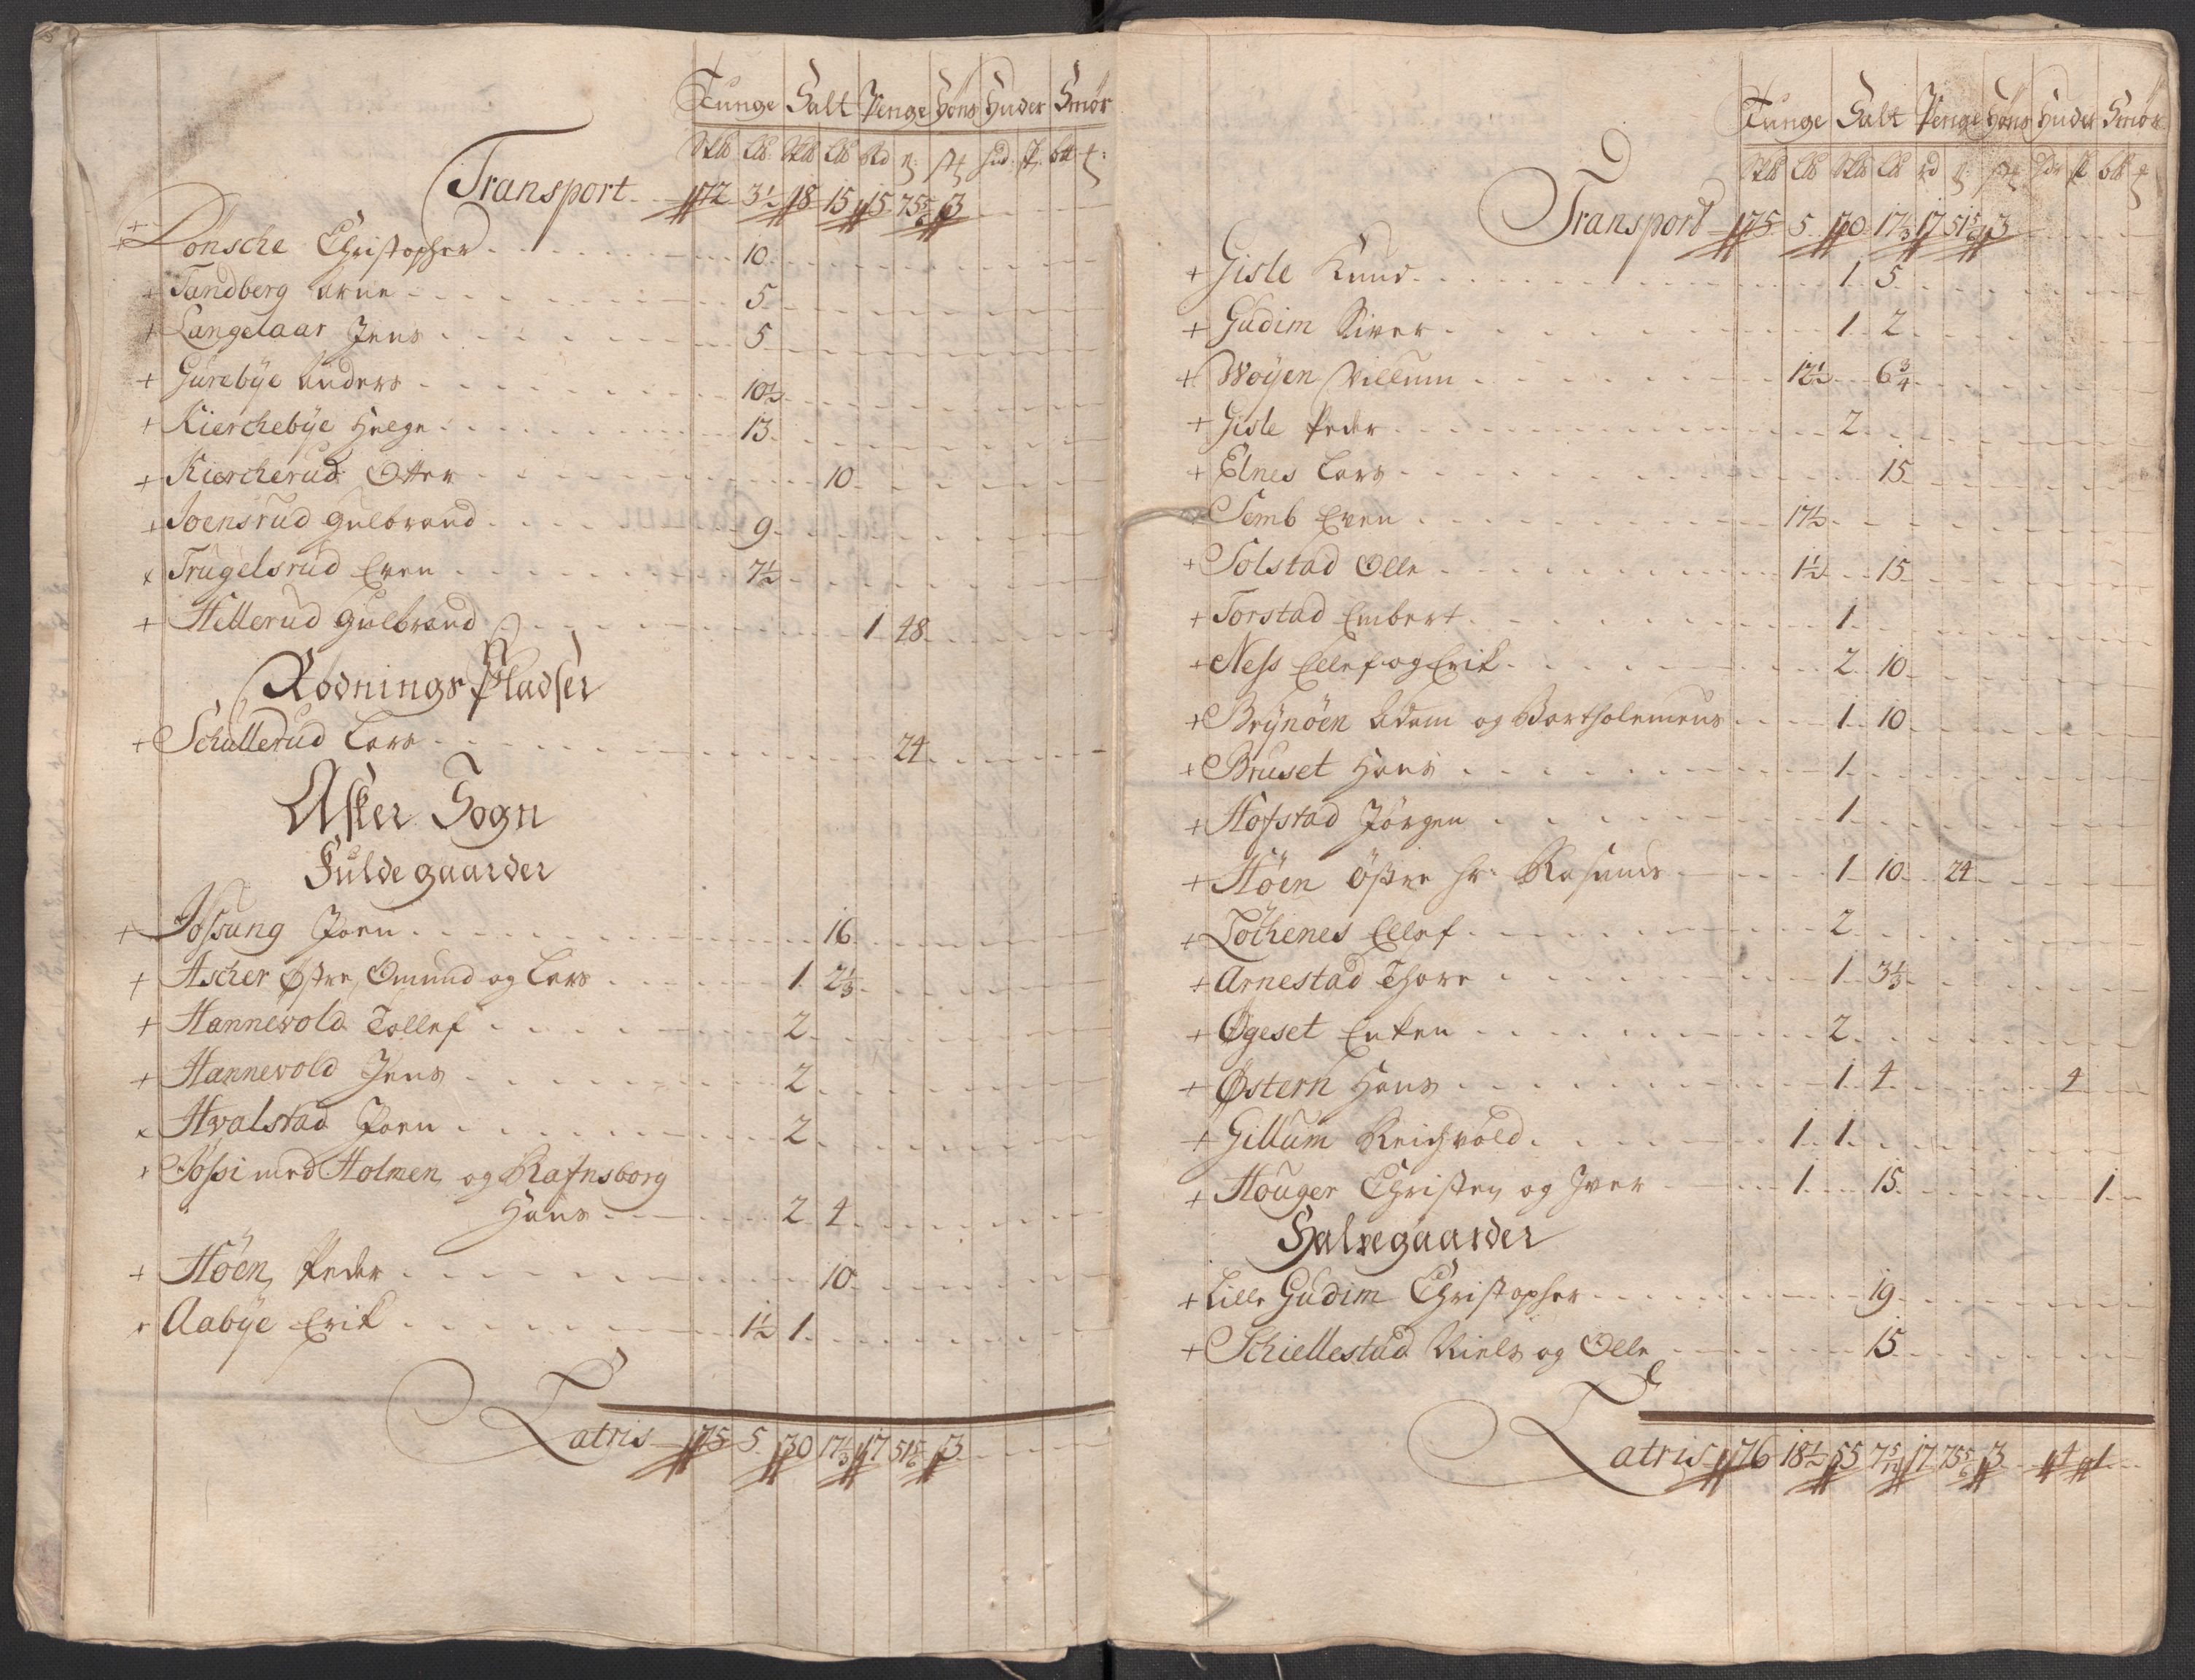 Tunge Salt Penge Høns Huder Smør
Transport 172 3½ 18 15 15 75 5/6 3
+ Donsche Christopher 10
+ Tandberg Arne 5
+ Langelaar Jens 5
+ Gurebÿe Anders 10½
+ Kierchebÿe Helge 13
+ Kiercherud Otter 10
+ Joensrud Gulbrand 9
x Trugelsrud Even 7½
+ Hillerud Gulbrand 1 48
Rødnings Pladser
+ Schullerud Lars 24
Asker Sogn
Fulde gaarder
+ Jossung Joen 16
+ Ascher Østre, Omund og Lars 1 2 1/3
+ Hannevold Tollef 2
+ Hannevold Jens 2
x Hvalstad Joen 2
+ med Holmen og Rafnsborg
Hans 2 4
+ Høen Peder 10
+ Aabÿe Erik 1½ 1
Latris 175 5 30 17 1/3 17 51 5/6 3
Tunge Salt Penge Høns Huder Smør
Transport 175 5 30 17 1/3 17 51 5/6 3
+ Gisle Knud 1 5
+ Gudim Siver 1 2
+ Woÿen Villum 12½ 6¾
+ Gisle Peder 2
+ Elnes Lars 15
Semb Even 17½
+ Solstad Olle 1½ 15
+ Torstad Embert 1
+ Ness Ellef og Erik 2 10
+ Brÿnøen Adam og Bartholemeus 1 10
+ Bruset Hans 1
+ Hofstad Jørgen 1
+ Høen Østre hr: 1 10 24
+ Løchenes Ellef 2
+ Arnestad Thore 1 3 1/3
+ Øgeset Enken 2
+ Østern Hans 1 4 4
+ Gillum Reichvold 1 1
+ Houger Christen og Iver 1 15 1
Halvegaarder
+ Lille Gudim Christopher 19
+ Schiellestad Niels og Olle 15
Latris 176 18½ 55 7 5/12 17 75 5/6 3 4 1